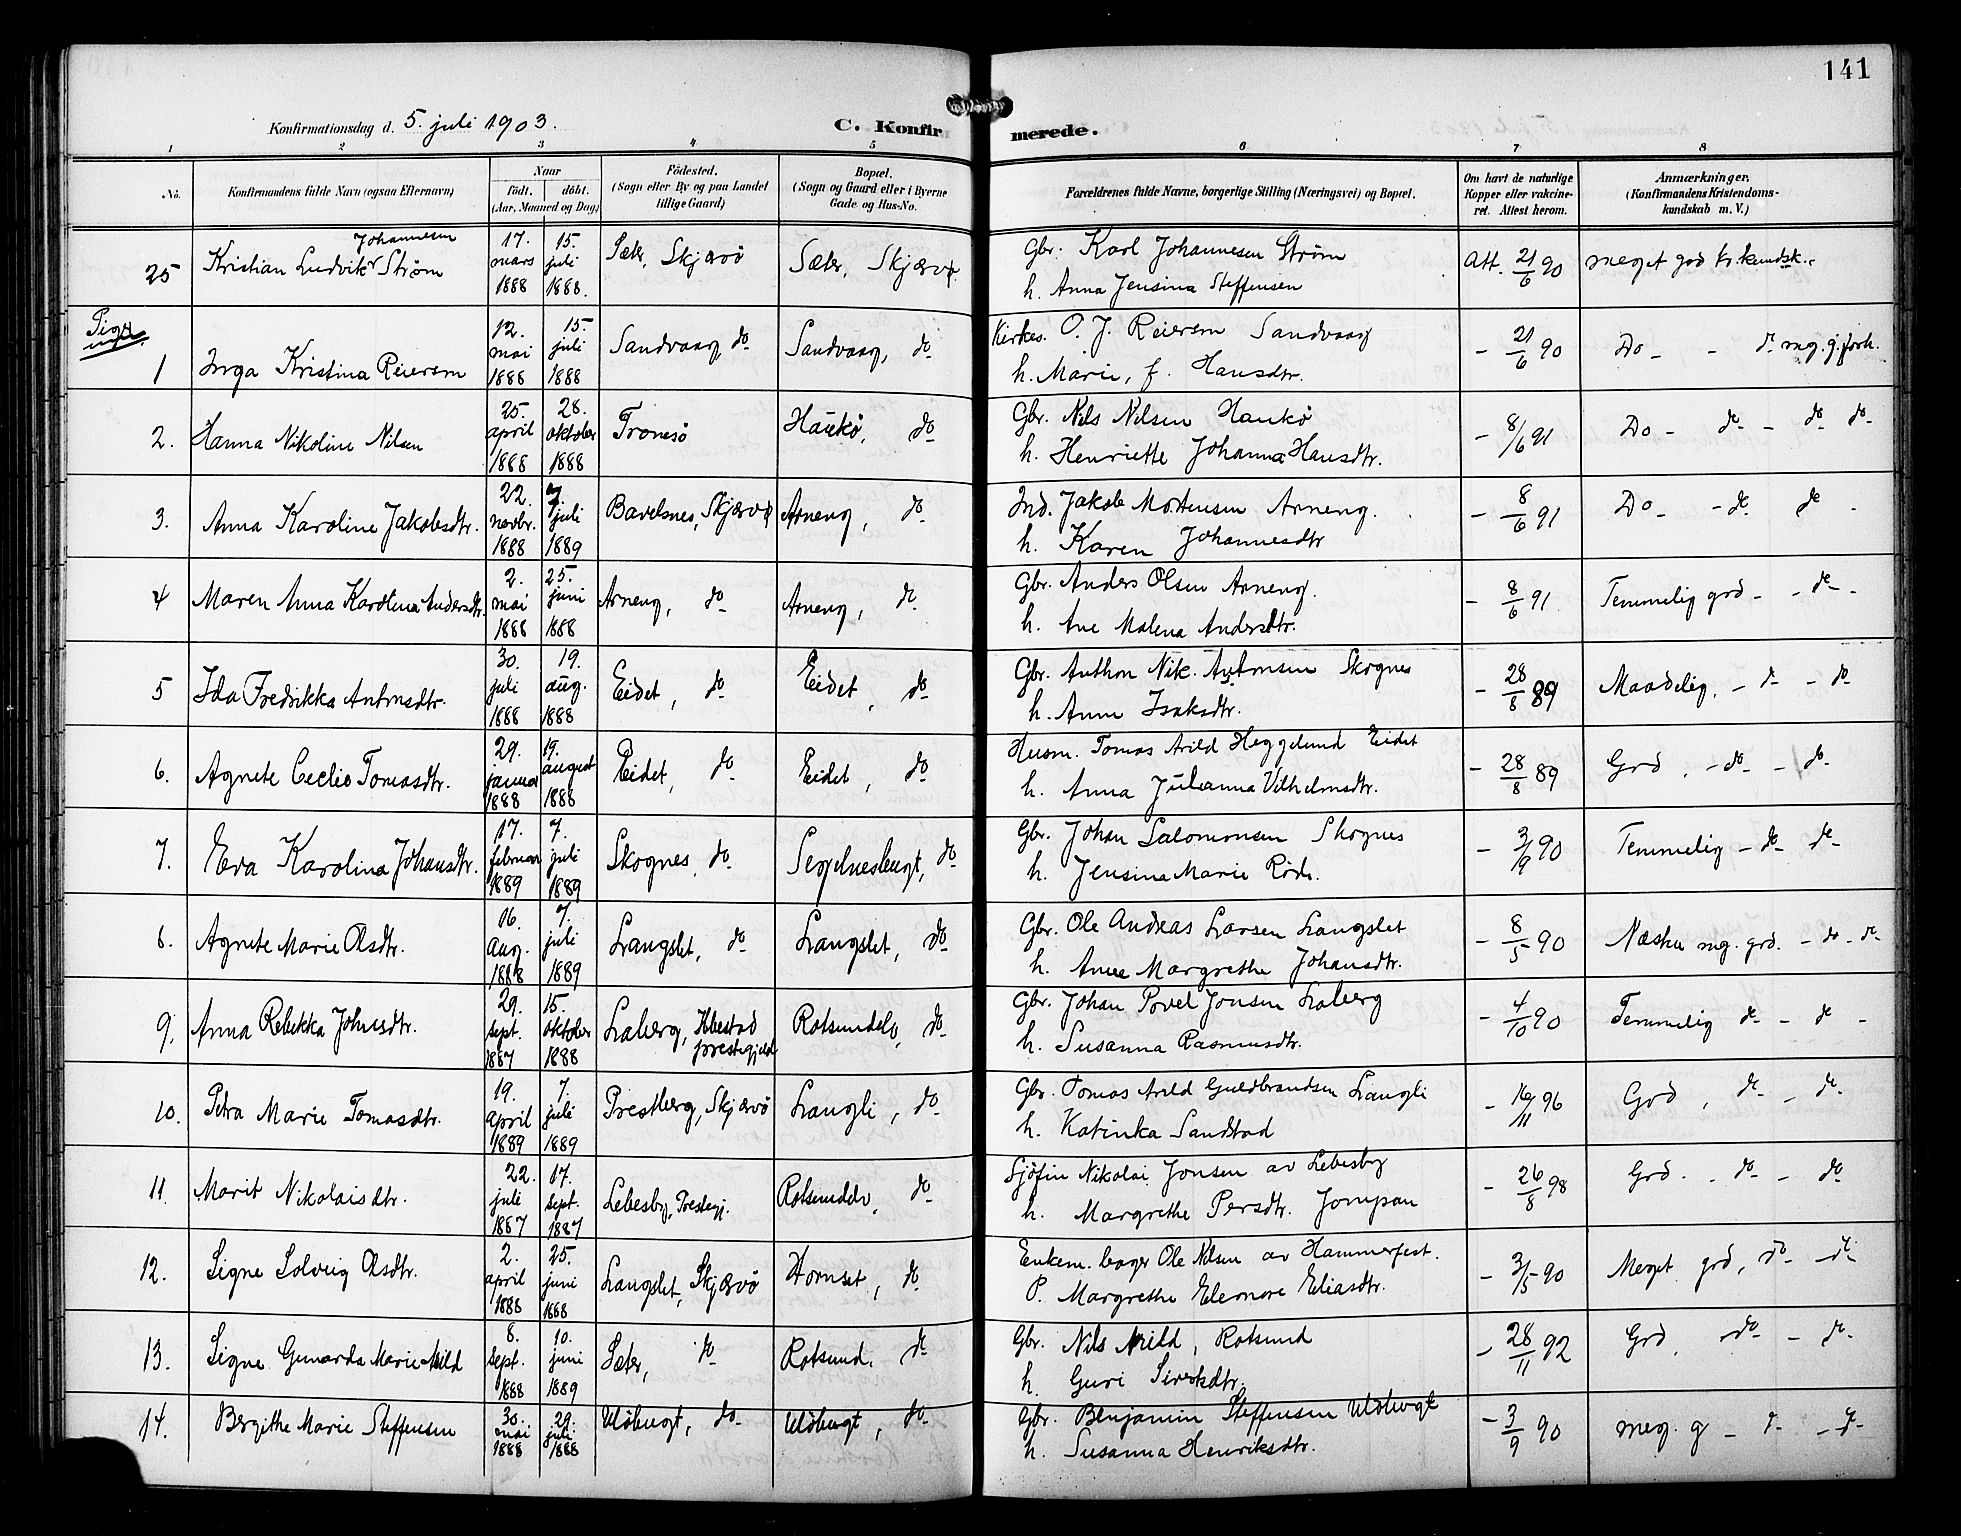 141
Konfirmationsdag d. 5. juli 1903.
C. Konfirmerede.
1 2 3 4 5 6 7 8
No.
Konfirmandens fulde Navn (ogsaa Efternavn)
Naar
født. døbt.
(Aar, Maaned og Dag)
Fødested.
(Sogn eller By og paa Landet
tillige Gaard)
Bopæl.
(Sogn og Gaard eller i Byerne
Gade og Hus-No.
Forældrenes fulde Navne, borgerlige Stilling (Næringsvei) og Bopæl.
Om havt de naturlige
Kopper eller vakcine-
ret. Attest herom.
Anmærkninger.
(Konfirmandens Kristendoms-
kundskab m. V.)
25 Kristian Ludvik Johannesen Strøm
17. mars 1888 15. juli 1888.
Sæter, Skjærvø
Sæter, Skjærvø.
Gbr. Karl Johannesen Strøm
h. Anna Jensina Steffensen
Att. 21/6 90
meget god kr.kundsk.
Piger
1 Inga Kristina Reiersen
12. mai 1888 15. juli 1888
Sandvaag do
Sandvaag, do
Kirkes. O. J. Reiersen Sandvaag
h. Marie, f. Hansdtr.
- 21/6 90
Do - - do mg. g. forh.
2. Hanna Nikoline Nilsen
25. april 1888 28. oktober 1888
Tromsø
Haukø, do
Gbr. Nils Nilsen Haukø
h. Henriette Johanna Hansdtr.
- 8/6 91
Do - do - do do
3. Anna Karoline Jakobsdtr.
22. novbr. 1888 7. juli 1889
Bavelsnes, Skjærvø
Arneng, do
Ind. Jakob Mortensen Arneng.
h. Karen Johannesdtr
- 8/6 91
Do - - do do -
4 Maren Anna Karolina Andersdtr.
2. mai 1888 25. juni 1888
Arneng, do
Arneng, do
Gbr. Anders Olsen Arneng.
h. Ane Malena Andersdtr.
- 8/6 91.
Temmelig god - - do -
5 Ida Fredrikka Antonsdtr.
30. juli 1888 19. aug. 1888
Eidet, do
Eidet, do
Gbr. Anthon Nik. Antonsen Skognes
h. Anne Isaksdtr.
- 28/8 89
Maadelig. - do - do
6. Agnete Cecilie Tomasdtr.
29. januar 1888 19. august 1888
Eidet, do
Eidet, do
Husm. Tomas Arild Heggelund Eidet
h. Anna Julianna Vilhelmsdtr.
- 28/8 89
God, - do - do
7. Eva Karolina Johansdtr.
17. februar 1889 7. juli 1889
Skognes, do
Segelnesbugt, do
Gbr. Johan Salomonsen Skognes
h. Jensina Marie
- 3/9 90
Temmelig - do - do
8. Agnete Marie Olsdtr.
16. aug. 1888 7. juli 1889
Langslet, do
Langslet, do
Gbr. Ole Andreas Larsen Langslet
h. Anne Margrethe Johansdtr.
- 8/5 90
Næsten mg. god. - do - do
9. Anna Rebekka Johnsdtr.
29. sept. 1887 15. oktober 1888
Laberg, Ibbestad
prestegjeld
Rotsundelv, do
Gbr. Johan Povel Jonsen Laberg
h. Susanna Rasmusdtr.
- 4/10 90
Temmelig do - do -
10. Petra Marie Tomasdtr.
19. april 1889 7. juli 1889
Prestberg, Skjærvø
Langli, do
Gbr. Tomas Arild Guldbrandsen Langli
h. Katinka Sandstad
- 16/11 96
God, do - do
11. Marit Nikolaisdtr.
22. juli 1887 17. sept. 1887
Lebesby, Prestegj.
Rotsundelv, do
Sjøfin Nikolai Jonsen av Lebesby
h. Margrethe Persdtr. Jompan
- 26/8 98
God. - do - do
12. Signe Solveig Olsdtr.
2. april 1888 25. juni 1888
Langslet, Skjærvø
Hornset, do
Enkem. bager Ole Nilsen av Hammerfest.
P. Margrethe Elenore Eliasdtr.
- 3/5 90
Meget god, do - do
13. Signe Gunarda Marie Arild
8. sept. 1888 10. juni 1889
Sæter, do
Rotsund, do
Gbr. Nils Arild, Rotsund
h. Guri
- 28/11 92
God, do - do
14. Bergithe Marie Steffensen
30. mai 1888 29. juli 1888
Uløbugt, do
Uløbugt, do
Gbr. Benjamin Steffensen Uløbugt
h. Susanna Henriksdtr.
- 3/9 90
meg. g - do - do